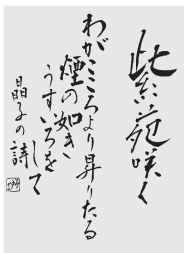 紫苑咲く
わがこころより昇りたる
煙の如き
うすいろをして
晶子の詩